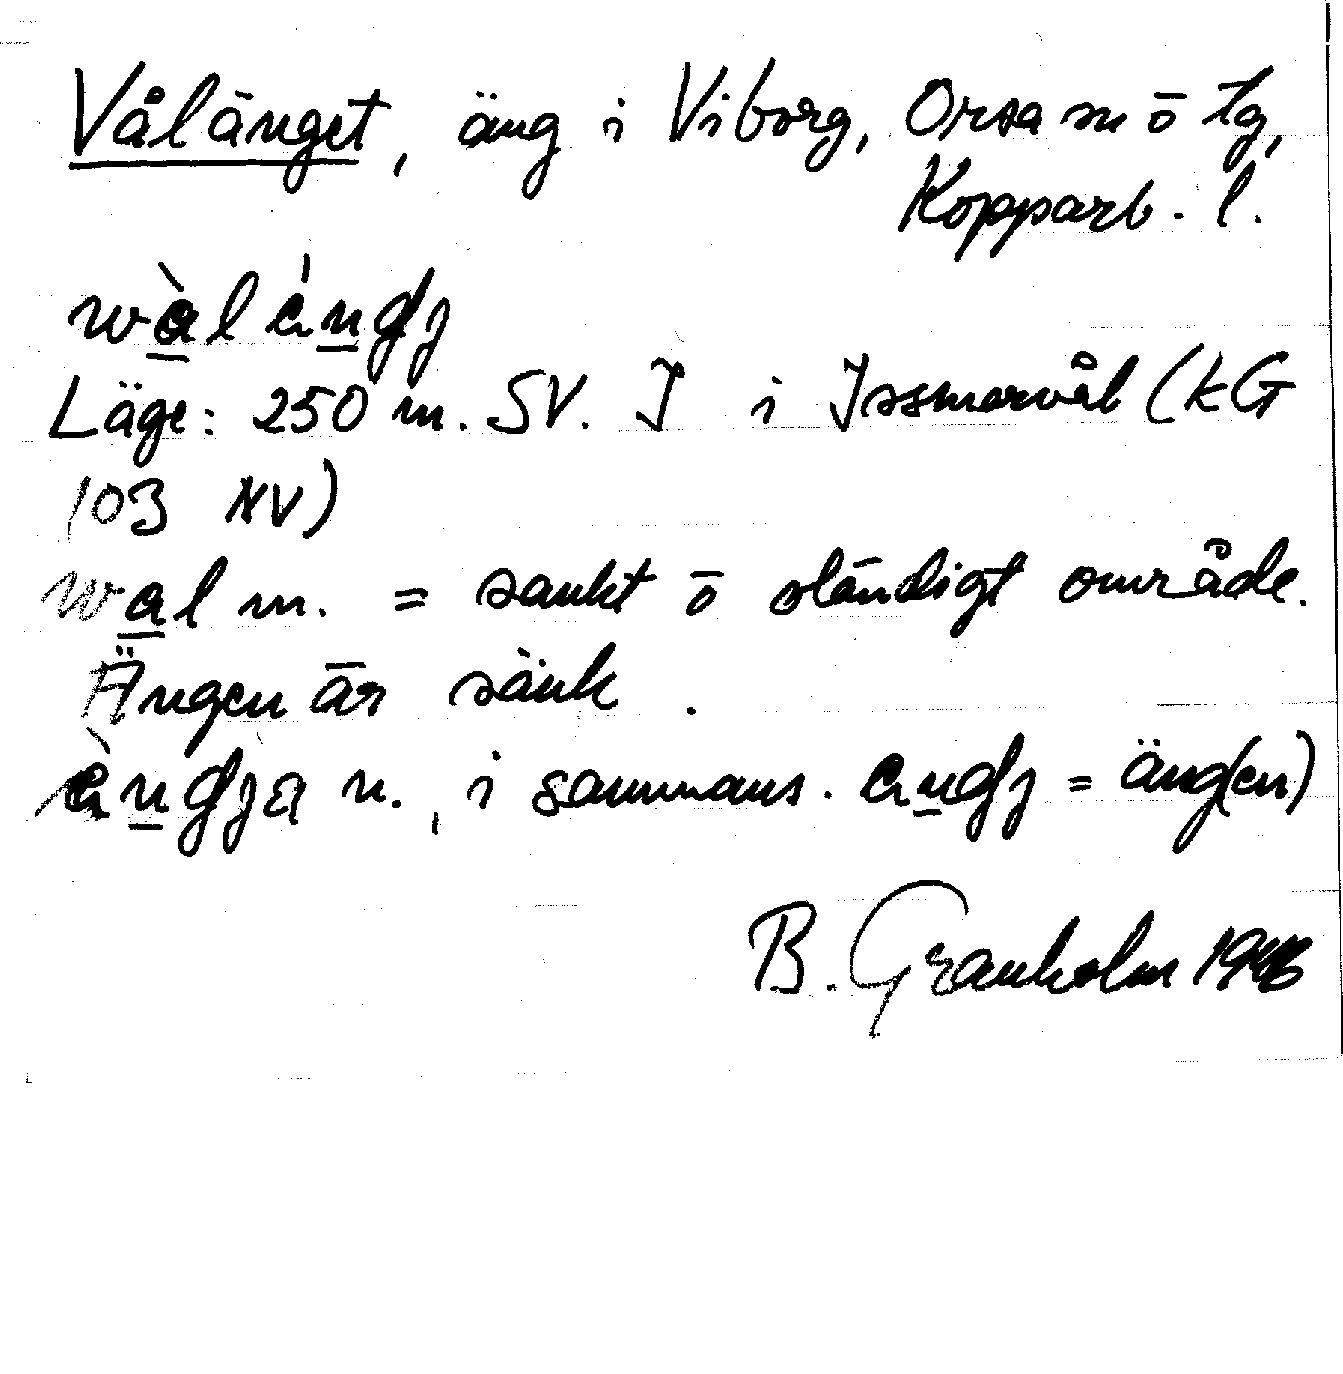 Vålänget, äng i Viborg, Orsa sn ō tg,
Kopparb. l.
wàlèndj
Läge: 250 m. SV. J i Issmorvål (kG
103 NV)
wal m. = sankt ō ständigt område.
Ängen är sänk.
èndja n., i sammans. endj = äng(en)
B. Granholm